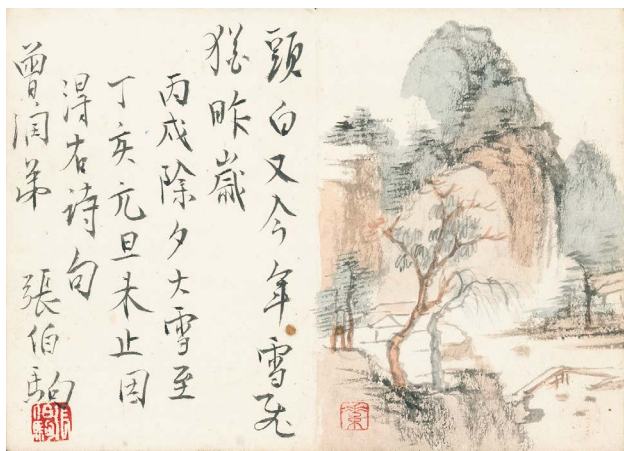 頭白又今年雪飛
猶昨歲
丙戌除夕大雪至
丁亥元旦未止因
得右诗句
曾 弟 張伯駒